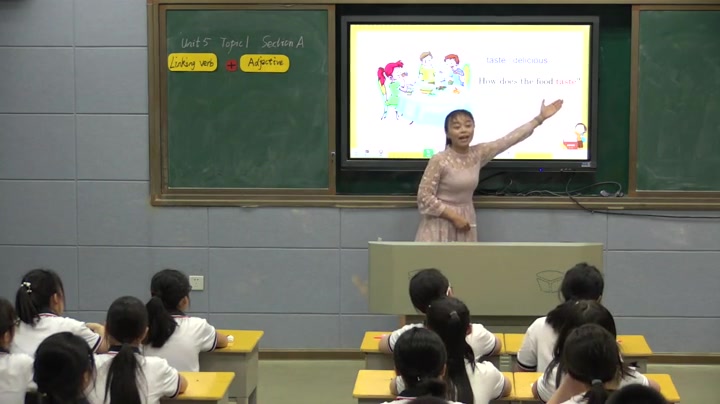 Unit 5 Topic 1 Section A
Linking verb + Adjective
taste delicious
How does the food taste?